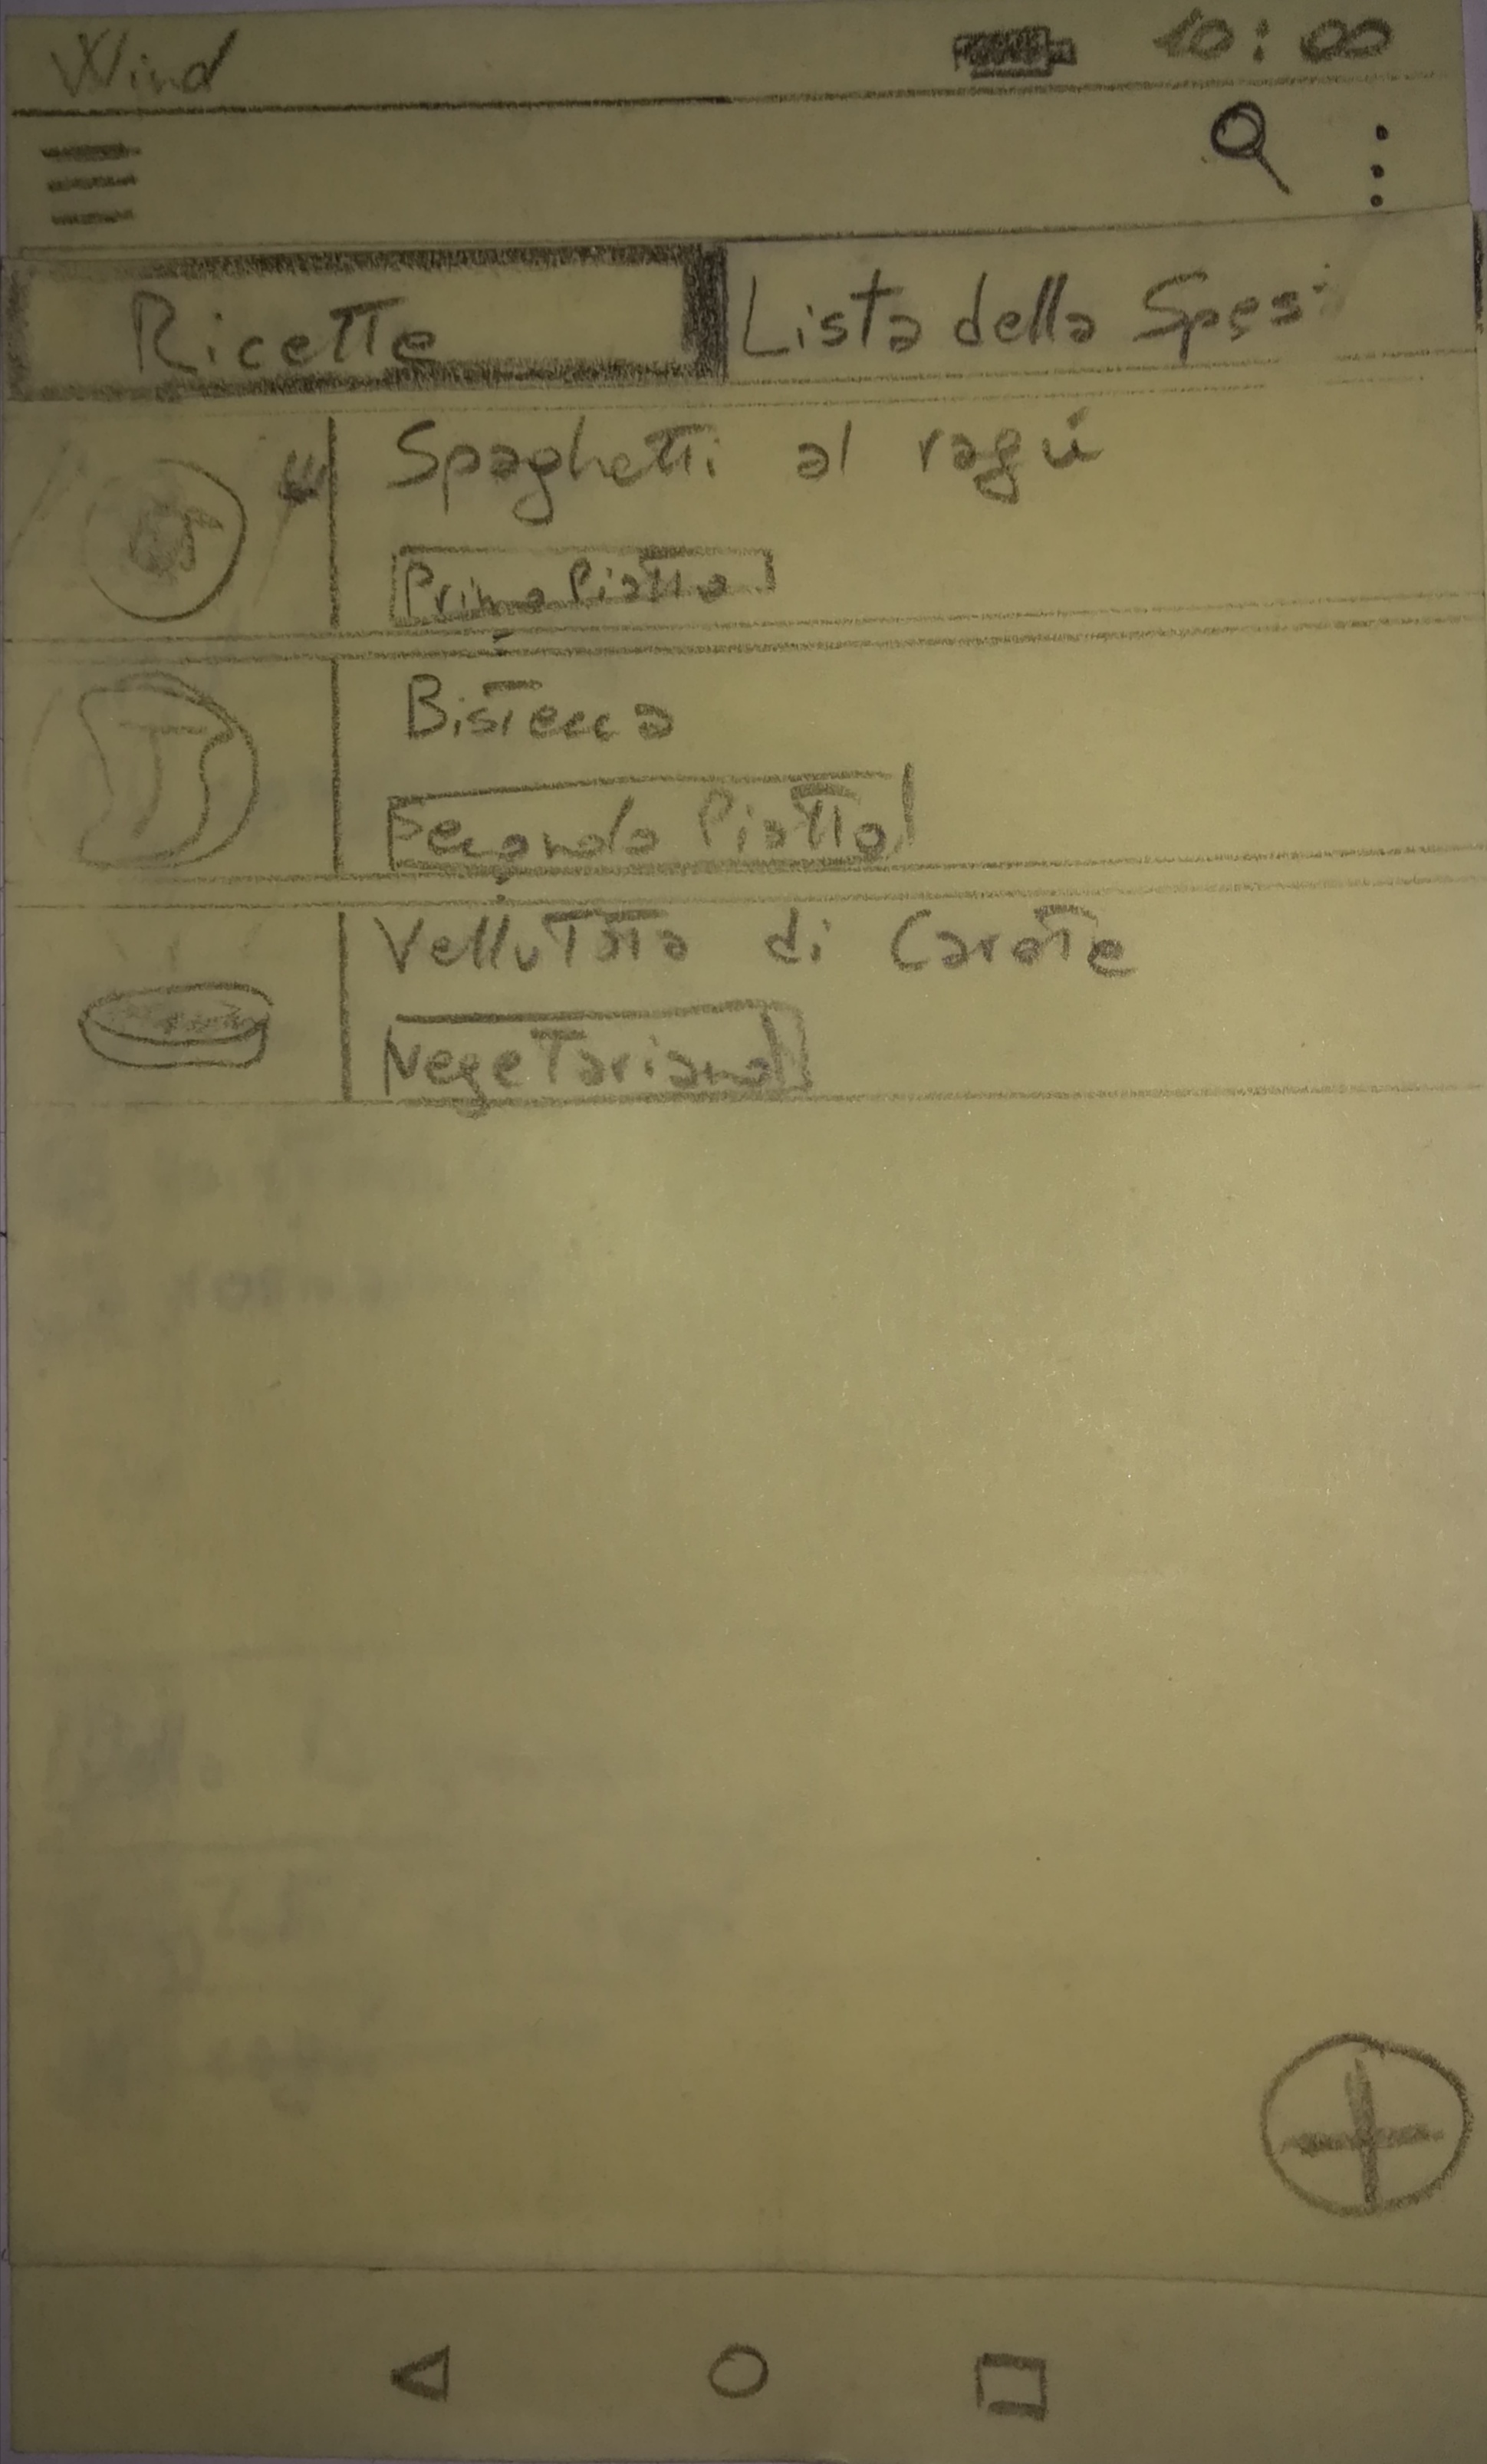 Wind 10:00
Ricette Lista della Spesa
Spaghetti al ragú
Primo Piatto
Bistecca
Secondo Piatto
Vellutata di Carote
Vegetariano